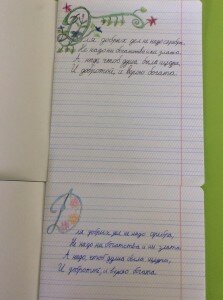 Для добрых дел не надо серебра,
Не надо ни богатства и ни злата.
А надо, чтоб душа была щедра,
И добротой, и волею богата.
Для добрых дел не надо серебра,
Не надо ни богатства и ни злата.
А надо, чтоб душа была щедра,
И добротой, и волею богата.